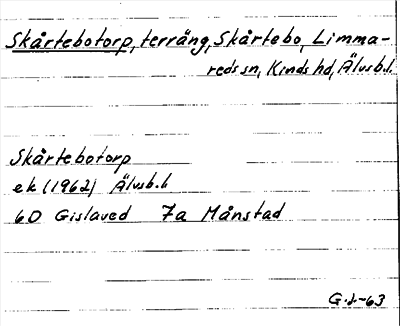 Skårtebotorp, terräng, Skårtebo, Limma-
reds sn, Kinds hd, Älvsb.l.
Skårtebotorp
ek (1962) Älvsb.l.
6D Gislaved 7a Månstad
G.J.-63